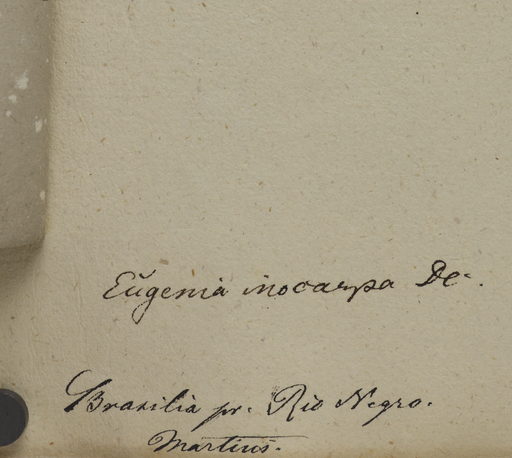 Eugenia inocarpa DC.
Brasilia pr. Rio Negro.
Martius.